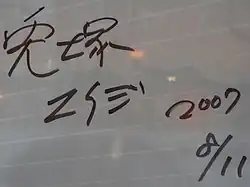 兎塚
エイジ 2007
8/11